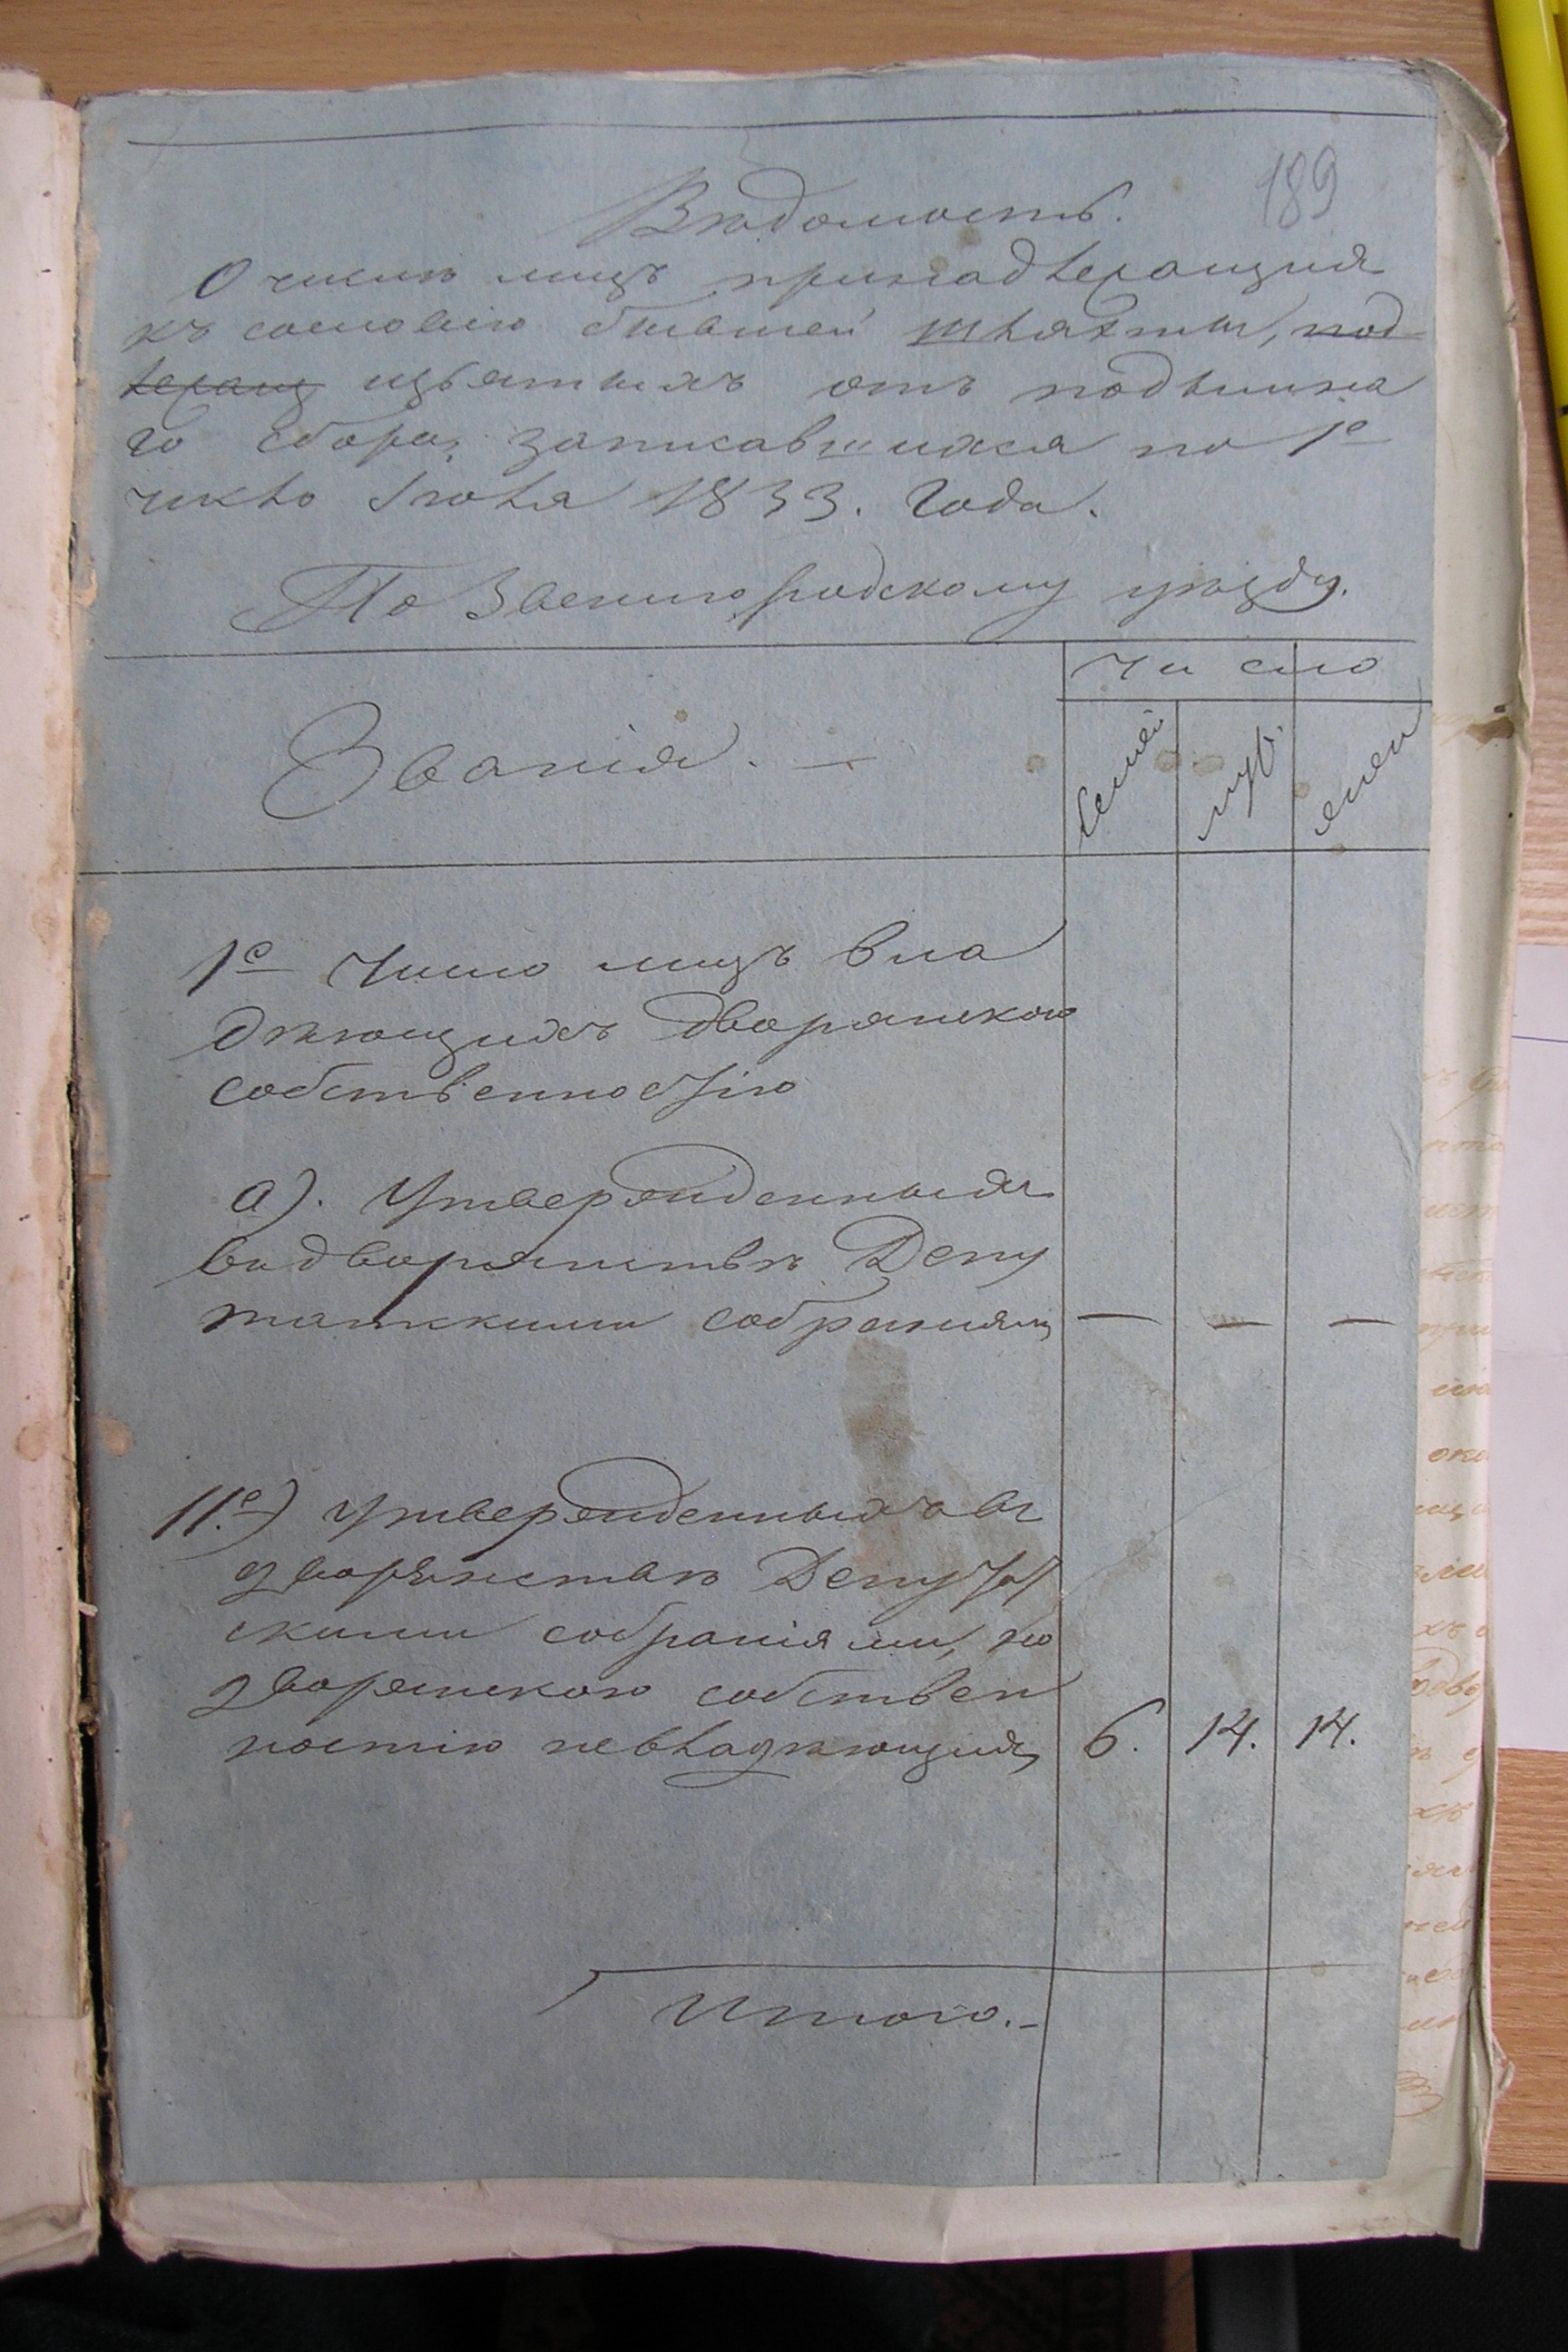 189
Вѣдомость.
О числѣ лицъ принадлежащихъ
къ сословію бывшей шляхты, под
лежащ изъятыхъ отъ подымна
го сбора, записавшихся по 1е
число Іюля 1833. Года.
По Звенигородскому уѣзду.
Число
Званія. —
Семей
муж.
жен
1е Число лицъ вла
дѣющихъ дворянскою
собственностію
а). Утвержденныхъ
въ дворянствѣ Депу
татскими собраніями — — —
11.е) Утвержденныхъ въ
дворянствѣ Депутат
скими собраніями, но
дворянскою собствен
ностію невладѣющихъ 6. 14. 14.
Итого. —